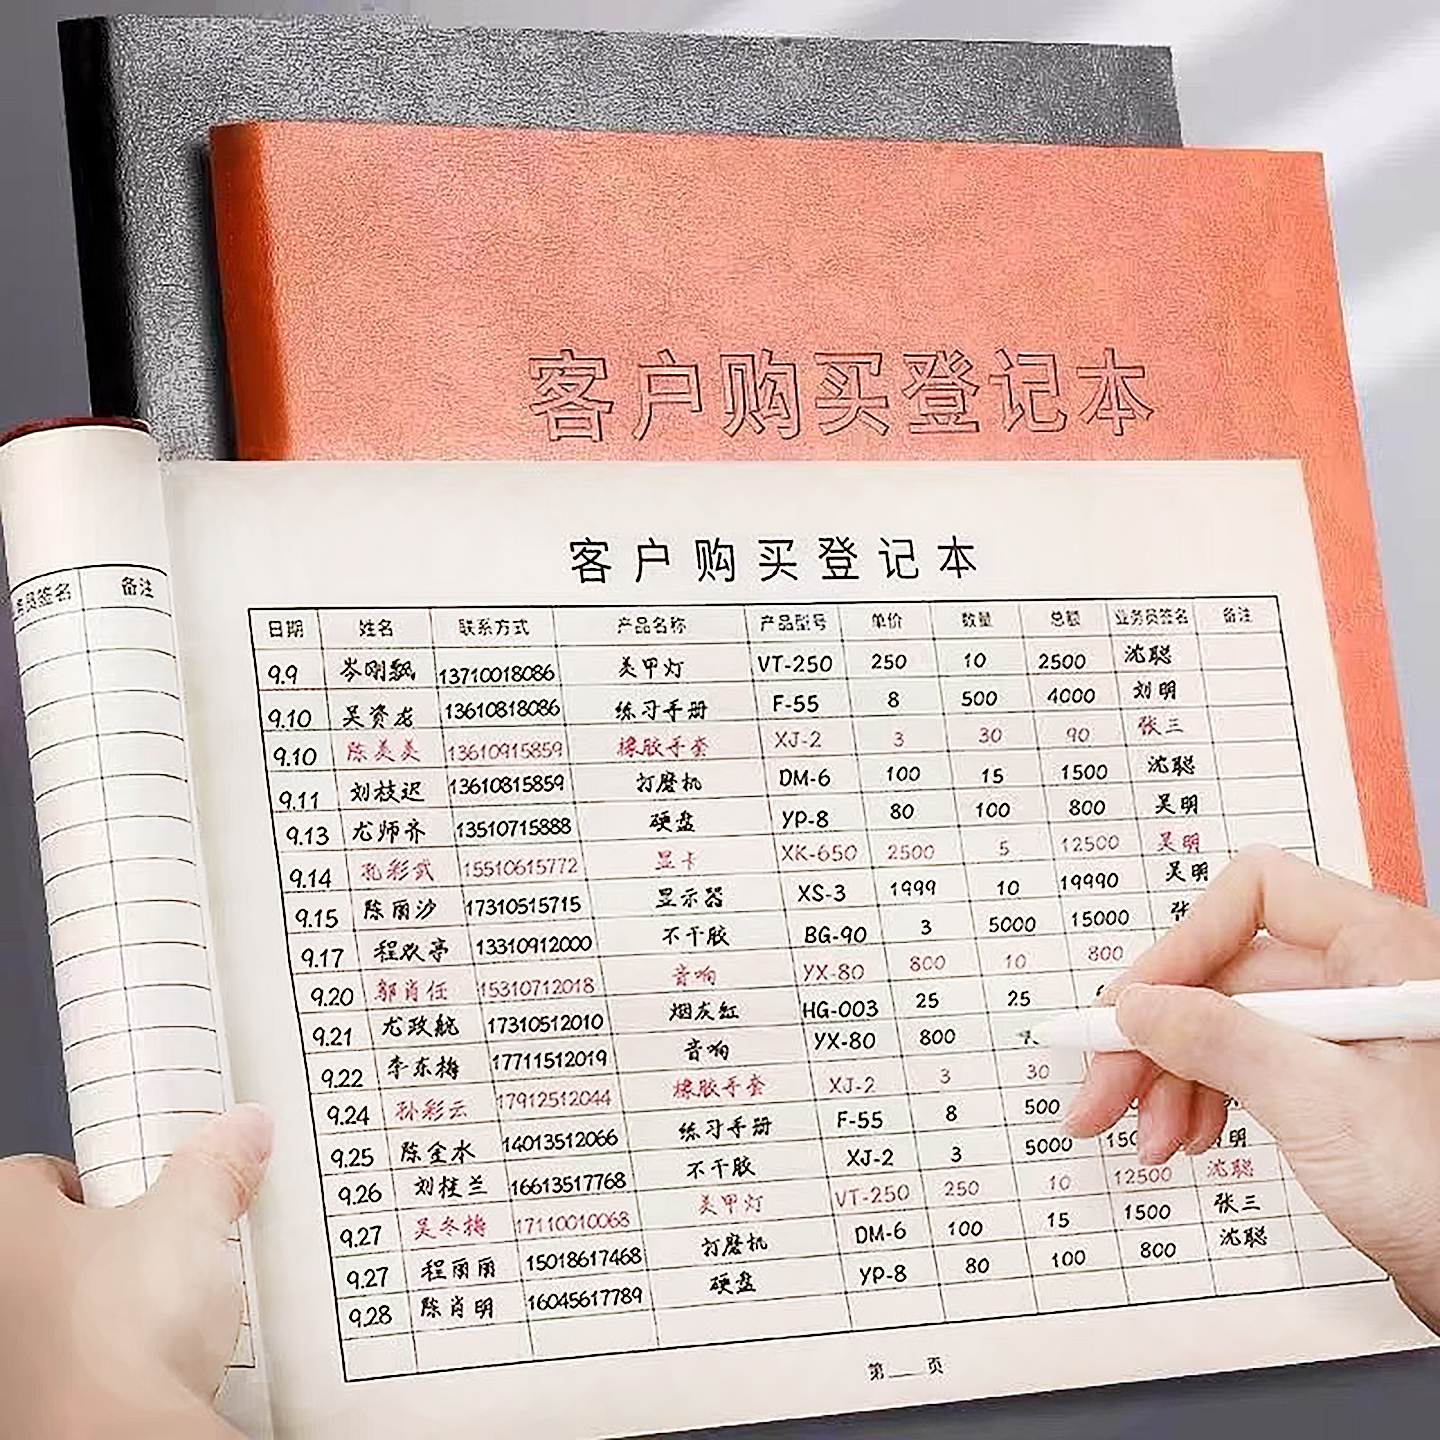 客户购买登记本
客户购买登记本
务员签名 备注
日期 姓名 联系方式 产品名称 产品型号 单价 数量 总额 业务员签名 备注
9.9 岑刚飘 13710018086 美甲灯 VT-250 250 10 2500 沈聪
9.10 吴资龙 13610818086 练习手册 F-55 8 500 4000 刘明
9.10 陈美美 13610915859 橡胶手套 XJ-2 3 30 90 张三
9.11 刘枝迟 13610815859 打磨机 DM-6 100 15 1500 沈聪
9.13 尤师齐 13510715888 硬盘 YP-8 80 100 800 吴明
9.14 孔彩武 15510615772 显卡 XK-650 2500 5 12500 吴明
9.15 陈丽沙 17310515715 显示器 XS-3 1999 10 19990 吴明
9.17 程欢亭 13310912000 不干胶 BG-90 3 5000 15000
9.20 邬肖任 15310712018 音响 YX-80 800 10 800
9.21 尤政航 17310512010 烟灰缸 HG-003 25 25
9.22 李东梅 17711512019 音响 YX-80 800
9.24 孙彩云 17912512044 橡胶手套 XJ-2 3 30
9.25 陈金水 14013512066 练习手册 F-55 8 500
9.26 刘桂兰 16613517768 不干胶 XJ-2 3 5000 明
9.27 吴冬梅 17110010068 美甲灯 VT-250 250 10 12500 沈聪
9.27 程丽丽 15018617468 打磨机 DM-6 100 15 1500 张三
9.28 陈肖明 16045617789 硬盘 YP-8 80 100 800 沈聪
第 页